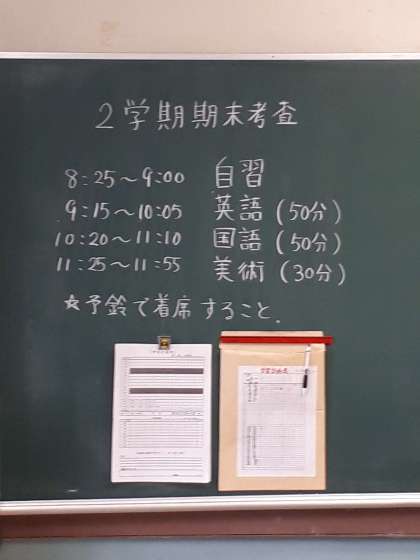 2学期期末考査
8:25〜9:00 自習
9:15〜10:05 英語(50分)
10:20〜11:10 国語(50分)
11:25〜11:55 美術(30分)
☆予鈴で着席すること.